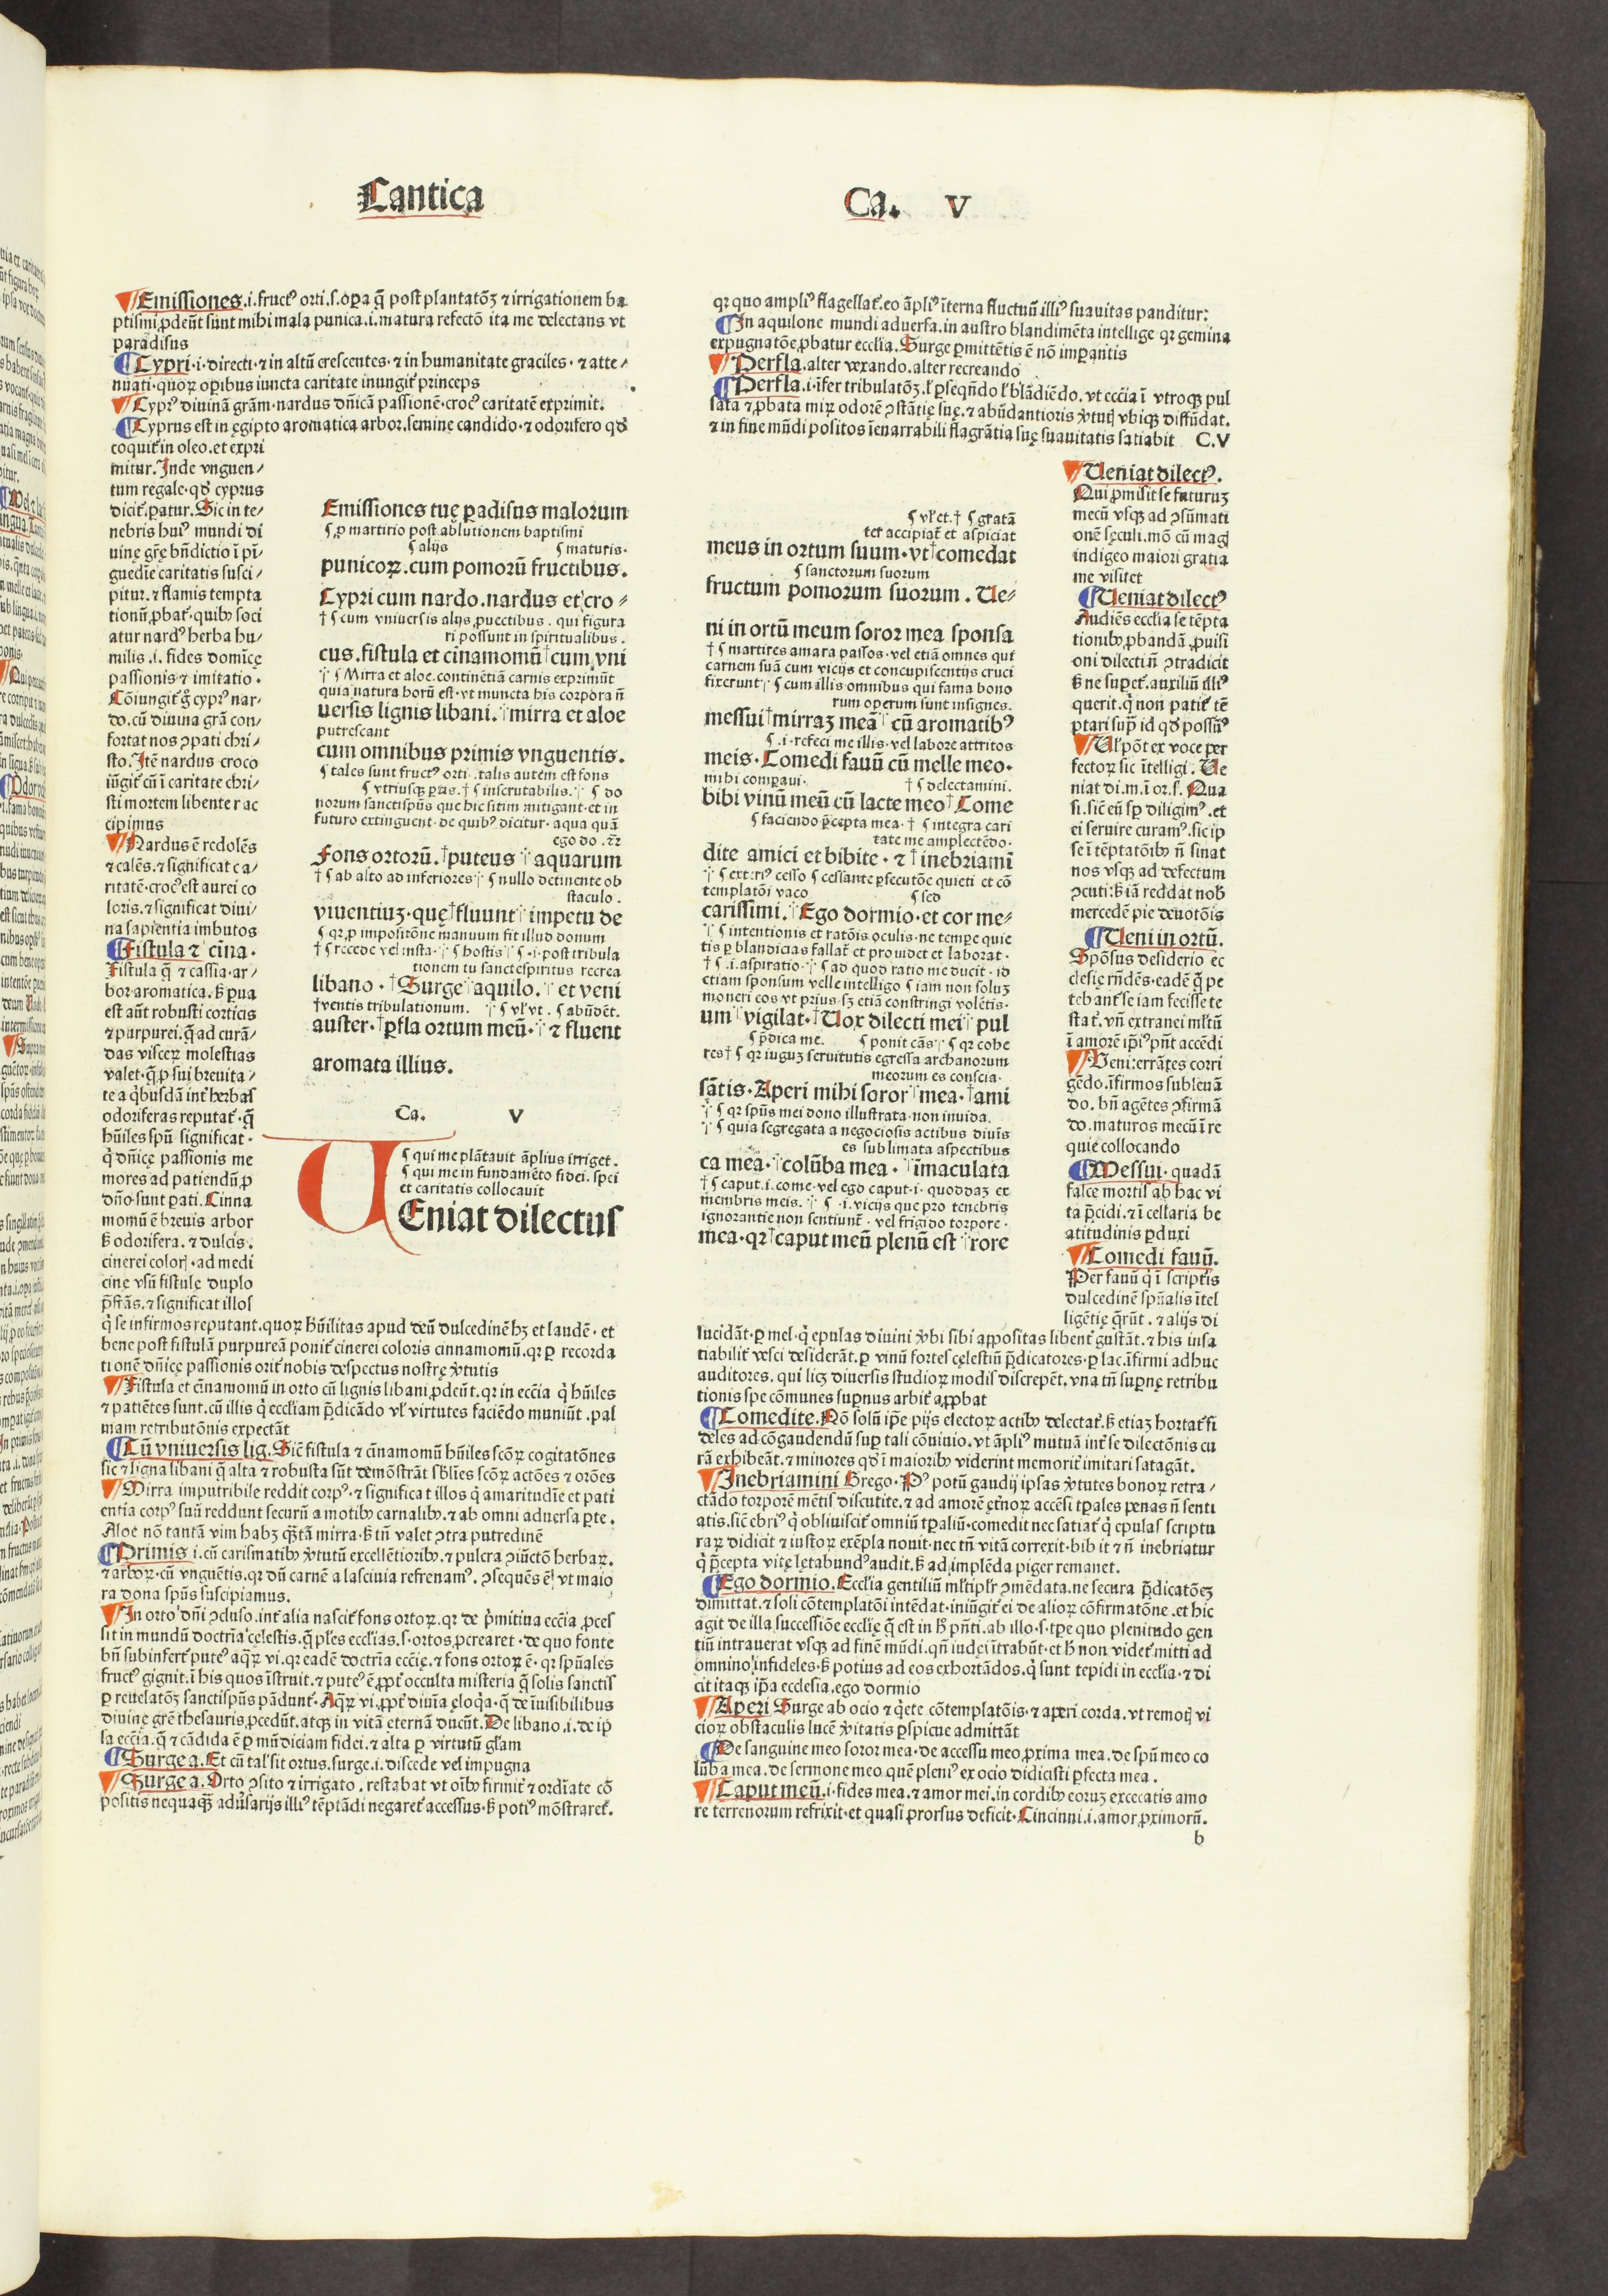 Cantica
Ca. V
¶Emissiones.i.fruct⁹ orti.s.oꝑa q̄ post plantatōꝫ ⁊ irrigationem ba
ptismi ꝓdeūt sunt mihi mala punica.i.matura refectō ita me delectans vt
paradisus
¶Cypri.i.directi.⁊ in altū crescentes.⁊ in humanitate graciles.⁊ atte/
nuati.quoꝝ oꝑibus iuncta caritate inungit᷑ princeps
¶Cypr⁹ diuinā grām.nardus dn̄icā passionē.croc⁹ caritatē exprimit.
¶Cyprus est in ęgipto aromatica arbor.semine candido.⁊ odorifero qd̛
coquit᷑ in oleo.et expri
mitur.Inde vnguen/
tum regale.qd̛ cyprus
dicit᷑.patur.Sic in te/
nebris hui⁹ mundi di
uinę grę bn̄dictio ī pī/
guedīe caritatis susci/
pitur.⁊ flamis tempta
tionū ꝓbat᷑.quibꝰ soci
atur nard⁹ herba hu/
milis.i.fides domīcę
passionis ⁊ imitatio.
Cōiungit᷑ ḡ cypr⁹ nar/
do.cū diuina grā con/
fortat nos ꝯpati chri/
sto.Itē nardus croco
iūgit᷑ cū ī caritate chri/
sti mortem libenter ac
cipimus
¶Nardus ē redolēs
⁊ calēs.⁊ significat ca/
ritatē.croc⁹ est aurei co
loris.⁊ significat diui/
na sapientia imbutos
¶Fistula ⁊ cīna.
Fistula q̄ ⁊ cassia.ar/
bor aromatica.ẞ ꝑua
est aūt robusti corticis
⁊ purpurei.q̄ ad curā/
das visceꝝ molestias
valet.q̄ ꝓ sui breuita/
te a q̇busdā int᷑ herbas
odoriferas reputat᷑.q̄
hūiles spū significat.
q̇ dn̄icę passionis me
mores ad patiendū ꝓ
dn̄o sunt ꝑati.Cinna
momū ē breuis arbor
ẞ odorifera.⁊ dulcis.
cinerei coloris.ad medi
cinę vsū fistulę duplo
p̄stās.⁊ significat illos
q̇ se infirmos reputant.quoꝝ hūilitas apud deū dulcedinē hꝫ et laudē.et
bene post fistulā purpureā ponit᷑ cinerei coloris cinnamomū.qꝛ ꝑ recorda
tionē dn̄icę passionis orit᷑ nobis despectus nostrę v̄tutis
¶Fistula et cīnamomū in orto cū lignis libani ꝓdeūt.qꝛ in ecc̄ia q̇ hūiles
⁊ patiētes sunt.cū illis q̇ eccl̄iam p̄dicādo vl᷑ virtutes faciēdo muniūt.pal
mam retributōnis expectāt
¶Cū vniuersis lig.Sic̄ fistula ⁊ cīnamomū hūiles scōꝝ cogitatōnes
sic ⁊ ligna libani q̄ alta ⁊ robusta sūt demōstrāt sbl̄ies scōꝝ actōes ⁊ orōes
¶Mirra imputribile reddit corp⁹.⁊ significat illos q̇ amaritudīe et pati
entia corp⁹ suū reddunt securū a motibꝰ carnalibꝰ.⁊ ab omni aduersa ꝑte.
Aloe nō tantā vim habꝫ q̄stā mirra.ẞ tn̄ valet ꝯtra putredinē
¶Primis i.cū carismatibꝰ v̄tutū excellētioribꝰ.⁊ pulcra ꝯiūctō herbaꝝ.
⁊ arboꝝ.cū vnguētis.qꝛ dū carnē a lasciuia refrenam⁹.ꝯsequēs ē vt maio
ra dona spūs suscipiamus.
¶In orto dn̄i ꝯcluso.int᷑ alia nascit᷑ fons ortoꝝ.qꝛ de p̄mitiua ecc̄ia ꝓces
sit in mundū doctrīa cęlestis.q̄ pl̄es eccl̄ias.s.ortos ꝓcrearet.de quo fonte
bn̄ subinfert᷑ pute⁹ aq̄ꝝ vi.qꝛ eadē doctrīa ecc̄ię.⁊ fons ortoꝝ ē.qꝛ spūales
fruct⁹ gignit.ī his quos īstruit.⁊ pute⁹ ē ꝓpt᷑ occulta misteria q̄ solis sanctis
ꝑ reuelatōꝫ sanctispūs pādunt᷑.Aq̄ꝝ vi.ꝓpt᷑ diuīa ęloq̇a.q̄ de īuisibilibus
diuinę grē thesauris ꝓcedūt.atqꝫ in vitā eternā ducūt.De libano.i.de ip̄
sa ecc̄ia.q̄ ⁊ cādida ē ꝑ mūdiciam fidei.⁊ alta ꝑ virtutū gl̄am
¶Surge a.Et cū tal᷑ sit ortus.surge.i.discede vel impugna
¶Surge a.Orto ꝯsito ⁊ irrigato.restabat vt oībꝰ firmit᷑ ⁊ ordīate cō
positis nequaq̄ȝ adūsarijs illi⁹ tēptādi negaret᷑ accessus.ẞ poti⁹ mōstraret᷑.
Emissiones tuę ꝑadisus malorum
¶ ꝓ martirio post ablutionem baptismi
¶ alijs ¶ maturis.
punicoꝝ.cum pomorū fructibus.
Cypri cum nardo.nardus et cro⸗
† ¶ cum vniuersis alijs ꝓuectibus.qui figura
ri possunt in spiritualibus.
cus.fistula et cīnamomū † cum vni
¶ Mirra et aloe.continētiā carnis exprimūt
quia natura horū est.vt muncta his corpora n̄
uersis lignis libani. mirra et aloe
putrescant
cum omnibus primis vnguentis.
¶ tales sunt fruct⁹ orti.talis autem est fons
¶ vtriusqꝫ ꝑtis. † ¶ inscrutabilis. ¶ do
norum sanctispūs que hic sitim mitigant.et in
futuro extinguent.de quib⁹ dicitur.aqua quā
ego do.⁊c̄
Fons ortorū. † puteus aquarum
† ¶ ab alto ad inferiores ¶ nullo detinente ob
staculo.
viuentiuꝫ.quę † fluunt impetu de
¶ qꝛ ꝑ impositōne manuum fit illud donum
† ¶ recede vel insta. ¶ hostis ¶ .i.post tribula
tionem tu sanctespiritus recrea
libano. † Surge aquilo. et veni
† ventis tribulationum. ¶ vl᷑ vt. ¶ abūdēt.
auster. † ꝑfla ortum meū. ⁊ fluent
aromata illius.
Ca. V
¶ qui me plātauit āplius irriget.
¶ qui me in fundamēto fidei.spei
et caritatis collocauit
UEniat dilectus
qꝛ quo ampli⁹ flagellat᷑.eo āpli⁹ īterna fluctuū illi⁹ suauitas panditur:
¶In aquilone mundi aduersa.in austro blandimēta intellige qꝛ gemina
expugnatōe ꝓbatur eccl̄ia.Surge ꝑmittētis ē nō imꝑantis
¶Perfla.alter vexando.alter recreando
¶Perfla.i.īfer tribulatōꝫ.vl᷑ ꝑseqn̄do vl᷑ blādiēdo.vt ecc̄ia ī vtroqꝫ pul
sata ⁊ ꝓbata miꝝ odorē ꝯstātię suę.⁊ abūdantioris v̄tutis vbiqꝫ diffūdat.
⁊ in fine mūdi positos īenarrabili flagrātia suę suauitatis satiabit C.V
¶ vl᷑ et. † ¶ gratā
ter accipiat᷑ et aspiciat
meus in ortum suum.vt † comedat
¶ sanctorum suorum
fructum pomorum suorum.Ue⸗
ni in ortū meum soror mea sponsa
† ¶ martires amara passos.vel etiā omnes qui
carnem suā cum vicijs et concupiscentijs cruci
fixerunt ¶ cum illis omnibus qui fama bono
rum operum sunt insignes.
messui † mirraꝫ meā cū aromatib⁹
¶ .i.refeci me illis.vel labore attritos
meis.Comedi fauū cū melle meo.
mihi comparaui. † ¶ delectamini.
bibi vinū meū cū lacte meo † Come
¶ faciendo p̄cepta mea. † ¶ integra cari
tate me amplectēdo.
dite amici et bibite.⁊ † inebriamī
¶ exteri⁹ cesso ¶ cessante ꝑsecutōe quieti et cō
templatōi vaco ¶ sco
carissimi. Ego dormio.et cor me⸗
¶ intentionis et ratōis oculis.ne tempe quie
tis ꝑ blandicias fallat᷑ et prouidet et laborat.
† ¶ .i.aspiratio. ¶ ad quod ratio me ducit.id
etiam sponsum velle intelligo ¶ iam non soluꝫ
moneri eos vt prius.sꝫ etiā constringi volētis.
um vigilat. † Uox dilecti mei pul
¶ p̄dica me. ¶ ponit cās ¶ qꝛ cohe
res † ¶ qꝛ iuguꝫ seruitutis egressa archanorum
meorum es conscia.
sātis.Aperi mihi soror mea. † ami
¶ qꝛ spūs mei dono illustrata.non inuida.
¶ quia segregata a negociosis actibus diuīs
es sublimata aspectibus
ca mea. † colūba mea. īmaculata
† ¶ caput.i.come.vel ego caput.i.quoddaꝫ ex
membris meis. ¶ .i.vicijs que pro tenebris
ignorantie non sentiunt᷑.vel frigido torpore.
mea.qꝛ † caput meū plenū est rore
¶Ueniat dilect⁹.
Qui ꝓmisit se futuruꝫ
mecū vsqꝫ ad ꝯsūmati
onē sęculi.mō cū magis
indigeo maiori gratia
me visitet
¶Ueniat dilect⁹
Audiēs eccl̄ia se tēpta
tionibꝰ ꝓbandā ꝓuisi
oni dilecti n̄ ꝯtradicit
ẞ ne suꝑet᷑.auxiliū illi⁹
querit.q̇ non patit᷑ tē
ptari supͣ id qd̛ possum⁹
¶Ul᷑ pōt ex voce per
fectoꝝ sic ītelligi.Ue
niat di.m.ī or.s.Qua
si.sic̄ eū sꝑ diligim⁹.et
ei seruire curam⁹.sic ip̄
se ī tēptatōibꝰ n̄ sinat
nos vsqꝫ ad defectum
ꝯcuti:ẞ iā reddat nob̄
mercedē pie deuotōis
¶Ueni in ortū.
Spōsus desiderio ec
clesię rn̄dēs.eadē q̄ pe
tebant᷑ se iam fecisse te
stat᷑.vn̄ extranei ml̄tū
ī amorē ip̄i⁹ pn̄t accēdi
¶Ueni:errātes corri
gēdo.īfirmos subleuā
do.bn̄ agētes ꝯfirmā
do.maturos mecū ī re
quie collocando
¶Messui.quadā
falce mortis ab hac vi
ta p̄cidi.⁊ ī cellaria be
atitudinis ꝑduxi
¶Comedi fauū.
Per fauū q̇ ī scriptīs
dulcedinē spūalis ītel
ligētię q̄rūt.⁊ alijs di
lucidāt.ꝑ mel.q̇ epulas diuini v̄bi sibi aꝓpositas libent᷑ gustāt.⁊ his insa
tiabilit᷑ vesci desiderāt.ꝑ vinū fortes cęlestiū p̄dicatores.ꝑ lac.īfirmi adhuc
auditores.qui licꝫ diuersis studioꝝ modis discrepēt.vna tn̄ suꝑnę retribu
tionis spe cōmunes suꝑnus arbit᷑ aꝓpbat
¶Comedite.Nō solū ip̄e pijs electoꝝ actibꝰ delectat᷑.ẞ etiaꝫ hortat᷑ fi
deles ad cōgaudendū suꝑ tali cōuiuio.vt āpli⁹ mutuā int᷑ se dilectōnis cu
rā exhibeāt.⁊ minores qd̛ ī maioribꝰ viderint memorit᷑ imitari satagāt.
¶Inebriamini Grego.P⁹ potū gaudij ipsas v̄tutes bonoꝝ retra/
ctādo torporē mētis discutite.⁊ ad amorē ęt᷑noꝝ accēsi tꝑales penas n̄ senti
atis.sic̄ ebri⁹ q̇ obliuiscit᷑ omniū tꝑaliū.comedit nec satiat᷑ q̇ epulas scriptu
raꝝ didicit ⁊ iustoꝝ exēpla nouit.nec tn̄ vitā correxit.bibit ⁊ n̄ inebriatur
q̇ p̄cepta vitę lętabund⁹ audit.ẞ ad implēda piger remanet.
¶Ego dormio.Eccl̄ia gentiliū ml̄tipl᷑r ꝯmēdata.ne secura p̄dicatōeꝫ
dimittat.⁊ soli cōtemplatōi intēdat.iniūgit᷑ ei de alioꝝ cōfirmatōne.et hic
agit de illa successiōe eccl̄ię q̄ est in h̄ pn̄ti.ab illo.s.tꝑe quo plenitudo gen
tiū intrauerat vsqꝫ ad finē mūdi.qn̄ iudęi ītrabūt.et h̄ non videt᷑ mitti ad
omnino infideles.ẞ potius ad eos exhortādos.q̇ sunt tepidi in eccl̄ia.⁊ di
cit itaqꝫ ip̄a ecclesia.ego dormio
¶Aperi Surge ab ocio ⁊ q̇ete cōtemplatōis.⁊ aperi corda.vt remotis vi
cioꝝ obstaculis lucē v̄itatis ꝑspicue admittāt
¶De sanguine meo soror mea.de accessu meo ꝓxima mea.de spū meo co
lūba mea.de sermone meo quē pleni⁹ ex ocio didicisti ꝑfecta mea.
¶Caput meū.i.fides mea.⁊ amor mei.in cordibꝰ eoruꝫ excecatis amo
re terrenorum refrixit.et quasi prorsus deficit.Cincinni.i.amor ꝓximorū.
b